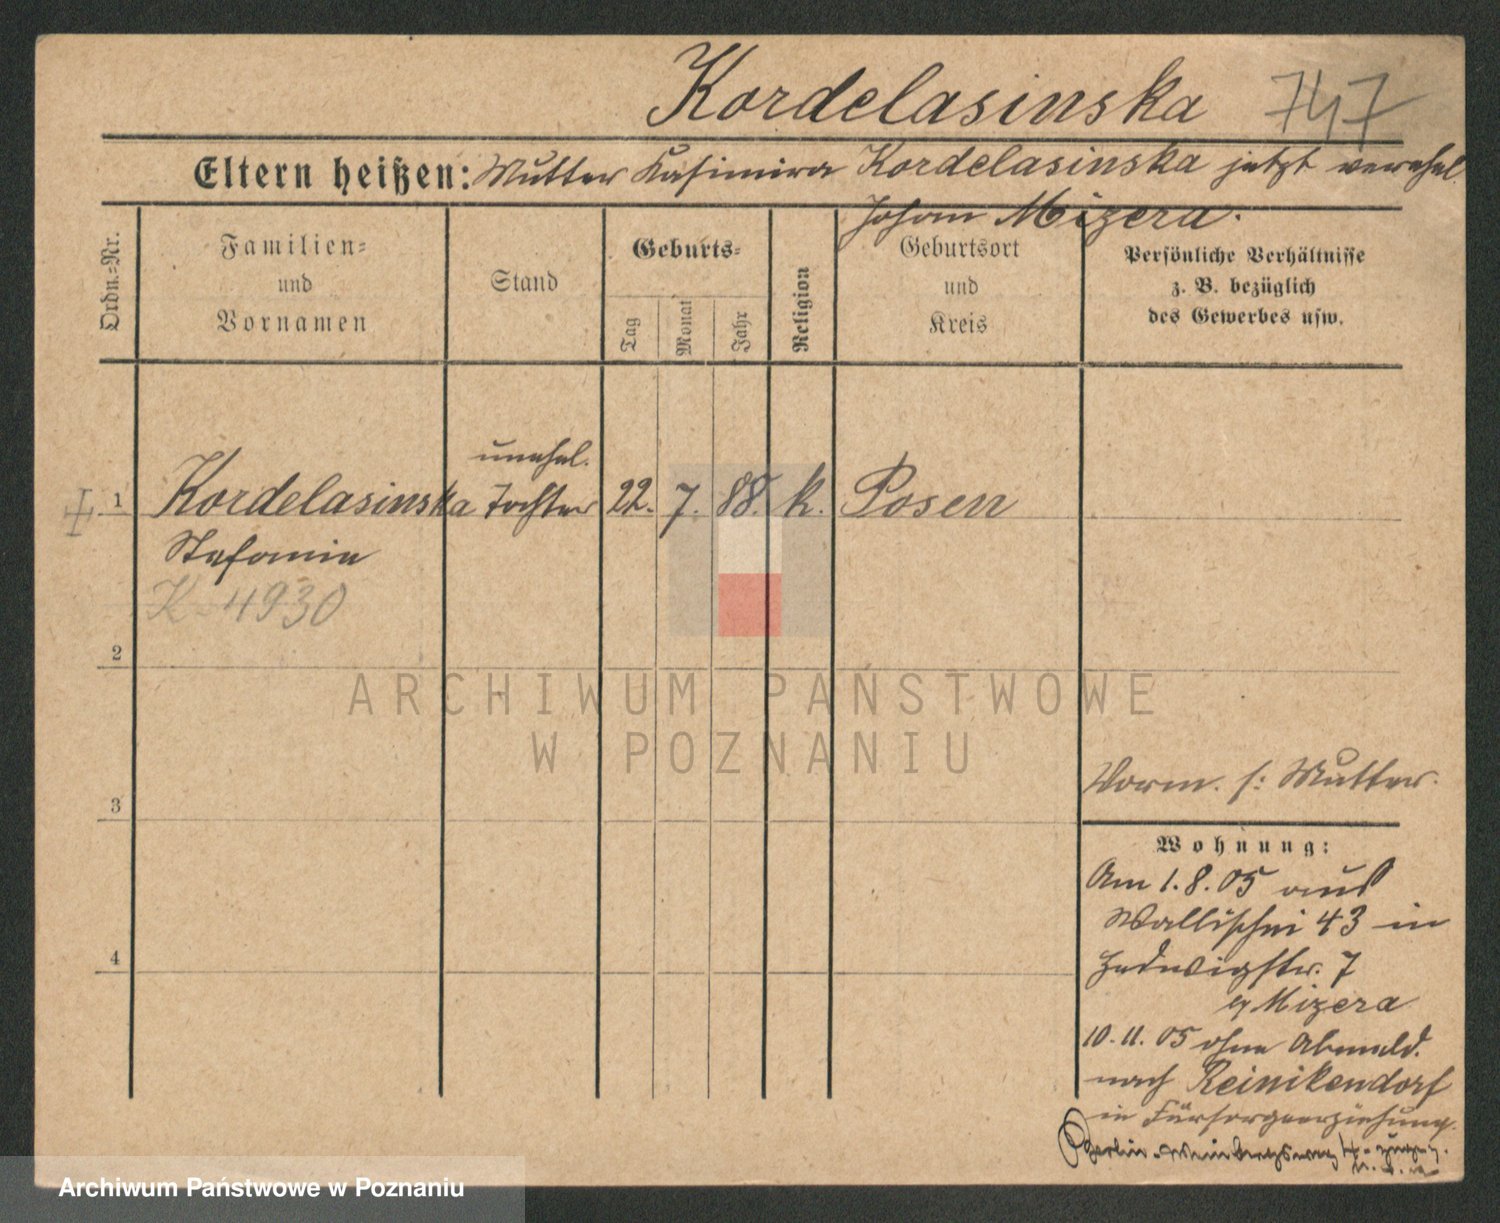 Kordelasinska 747
Eltern heißen: Mutter Kasimira Kordelasinska jetzt verehel.
Johann Mizera.
Ordn.=Nr.
Familien=
und
Vornamen
Stand
Geburts=
Tag
Monat
Jahr
Religion
Geburtsort
und
Kreis
Persönliche Verhältnisse
z. B. bezüglich
des Gewerbes usw.
unehel.
1 Kordelasinska Tochter 22. 7. 88. k. Posen
Stefanie
K 4930
2
ARCHIWUM PAŃSTWOWE
W POZNANIU
Vorm. s: Mutter.
3
Wohnung:
Am 1. 8. 05 aus
Wallischei 43 in
Hedwigstr. 7
Mizera
4
10. 11. 05 ohne Abmeld.
nach Reinikendorf
in Fürsorgeerziehung.
Berlin
Archiwum Państwowe w Poznaniu